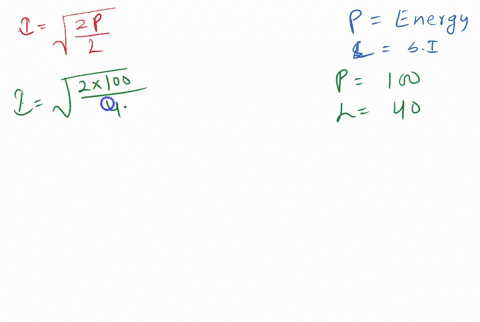 I = √(2P/L)
I = √(2×100/4.
P = Energy
L = S.I
P = 100
L = 40